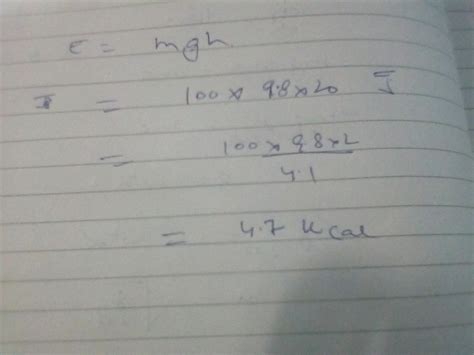 E = mgh
= 100 x 9.8 x 20 J
= 100 x 9.8 x 2 / 4.1
= 4.7 kcal